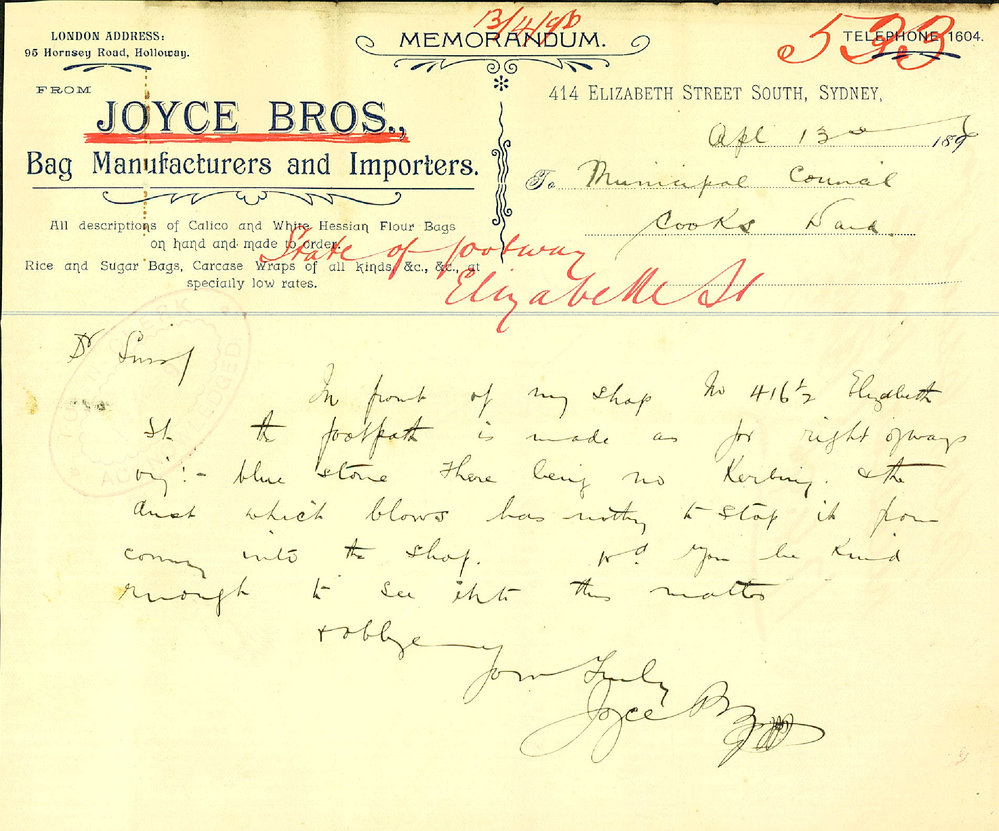 LONDON ADDRESS:
95 Hornsey Road, Holloway.
13/4/98
MEMORANDUM.
533
TELEPHONE 1604.
FROM
JOYCE BROS.,
Bag Manufacturers and Importers.
All descriptions of Calico and White Hessian Flour Bags
on hand and made to order.
Rice and Sugar Bags, Carcase Wraps of all kinds, &c., &c., at
specially low rates.
414 ELIZABETH STREET SOUTH, SYDNEY,
Apl 13 1898
To Municipal Council
Cooks Ward
State of footway
Elizabeth St
TOWN CLERK
ACKNOWLEDGED
Dr Sirs/
In front of my shop No 416½ Elizabeth
St the footpath is made as for right of ways
viz:- blue stone there being no Kerbing. & the
dust which blows has nothing to stop it from
coming into the shop. Wd you be kind
enough to see into this matter
& oblige
Yours Truly
Joyce Bros